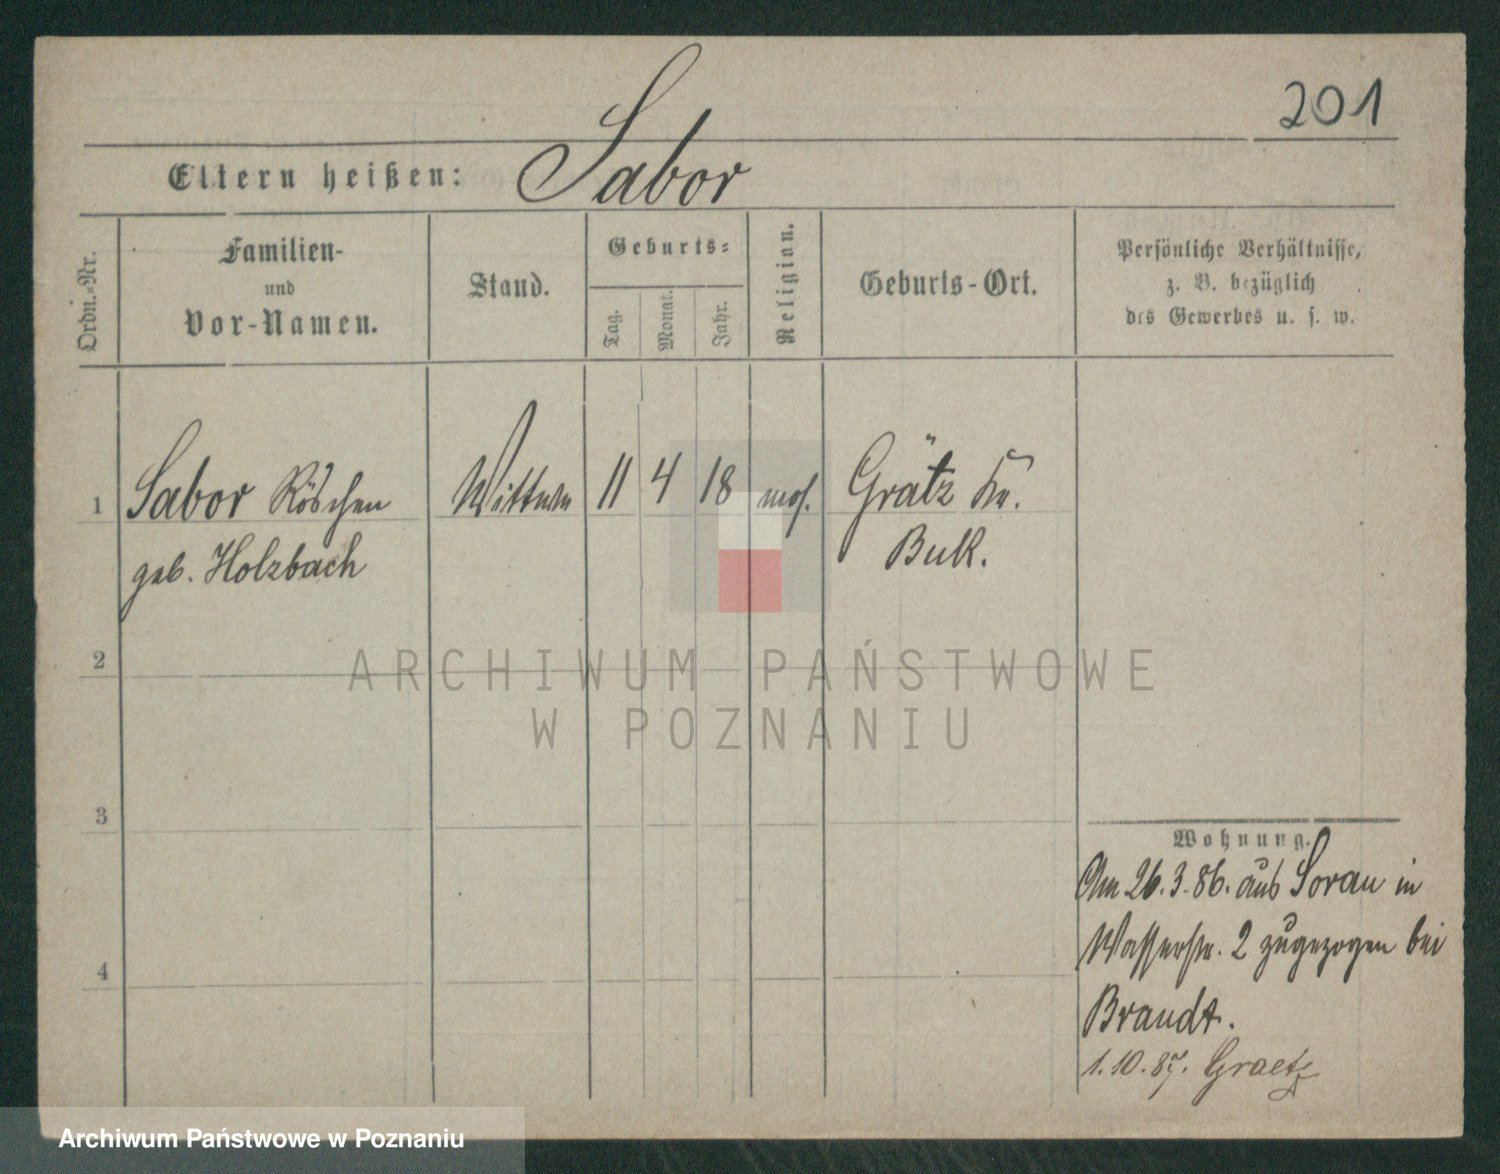 201
Eltern heißen: Sabor
Ordn.-Nr.
Familien-
und
Vor-Namen.
Stand.
Geburts-
Tag.
Monat.
Jahr.
Religion.
Geburts-Ort.
Persönliche Verhältnisse,
z. B. bezüglich
des Gewerbes u. s. w.
1 Sabor Röschen Wittwe 11 4 18 mos. Grätz Kr.
geb. Holzbach Buk.
2
ARCHIWUM PAŃSTWOWE
W POZNANIU
3
Wohnung.
Am 26.3.86. aus Sorau in
Wasserstr. 2 zugezogen bei
4
Brandt.
1.10.87. Graetz
Archiwum Państwowe w Poznaniu